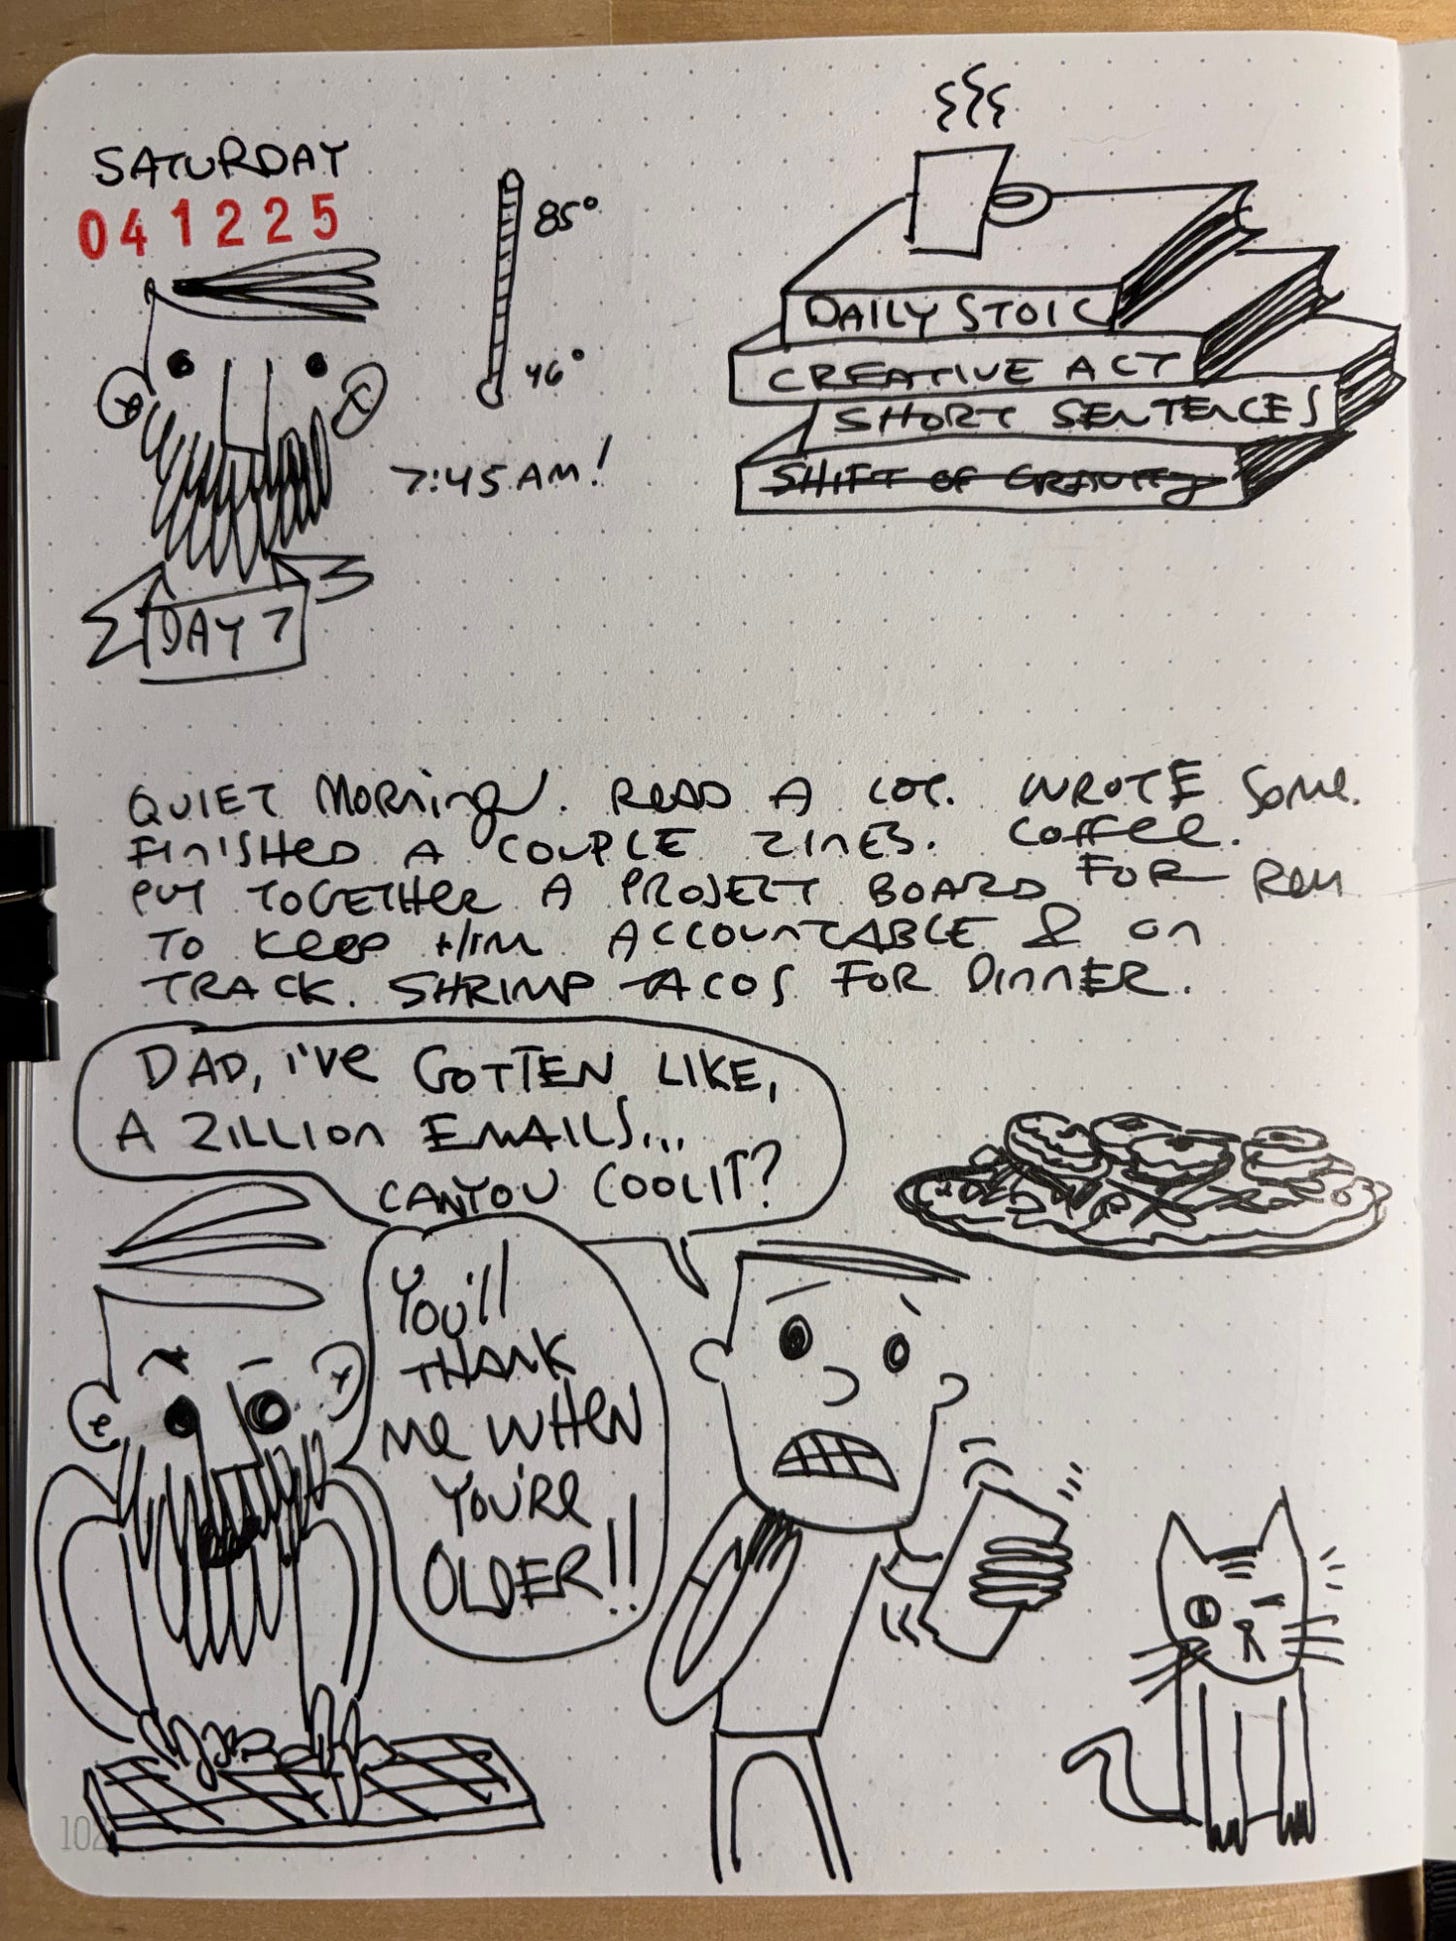 SATURDAY
041225
85°
46°
7:45 AM!
DAY 7
DAILY STOIC
CREATIVE ACT
SHORT SENTENCES
SHIFT OF GRAVITY
QUIET MORNING. READ A LOT. WROTE SOME.
FINISHED A COUPLE ZINES. COFFEE.
PUT TOGETHER A PROJECT BOARD FOR REM
TO KEEP HIM ACCOUNTABLE & ON
TRACK. SHRIMP TACOS FOR DINNER.
DAD, I'VE GOTTEN LIKE,
A ZILLION EMAILS...
CAN YOU COOL IT?
YOU'll
THANK
ME WHEN
YOU'RE
OLDER!!
102